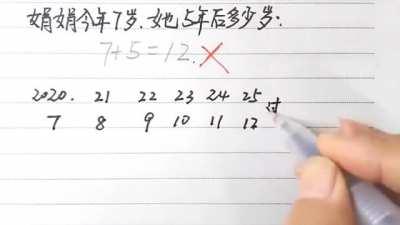 娟娟今年7岁.她5年后多少岁.
7+5=12.
2020. 21 22 23 24 25 过
7 8 9 10 11 12